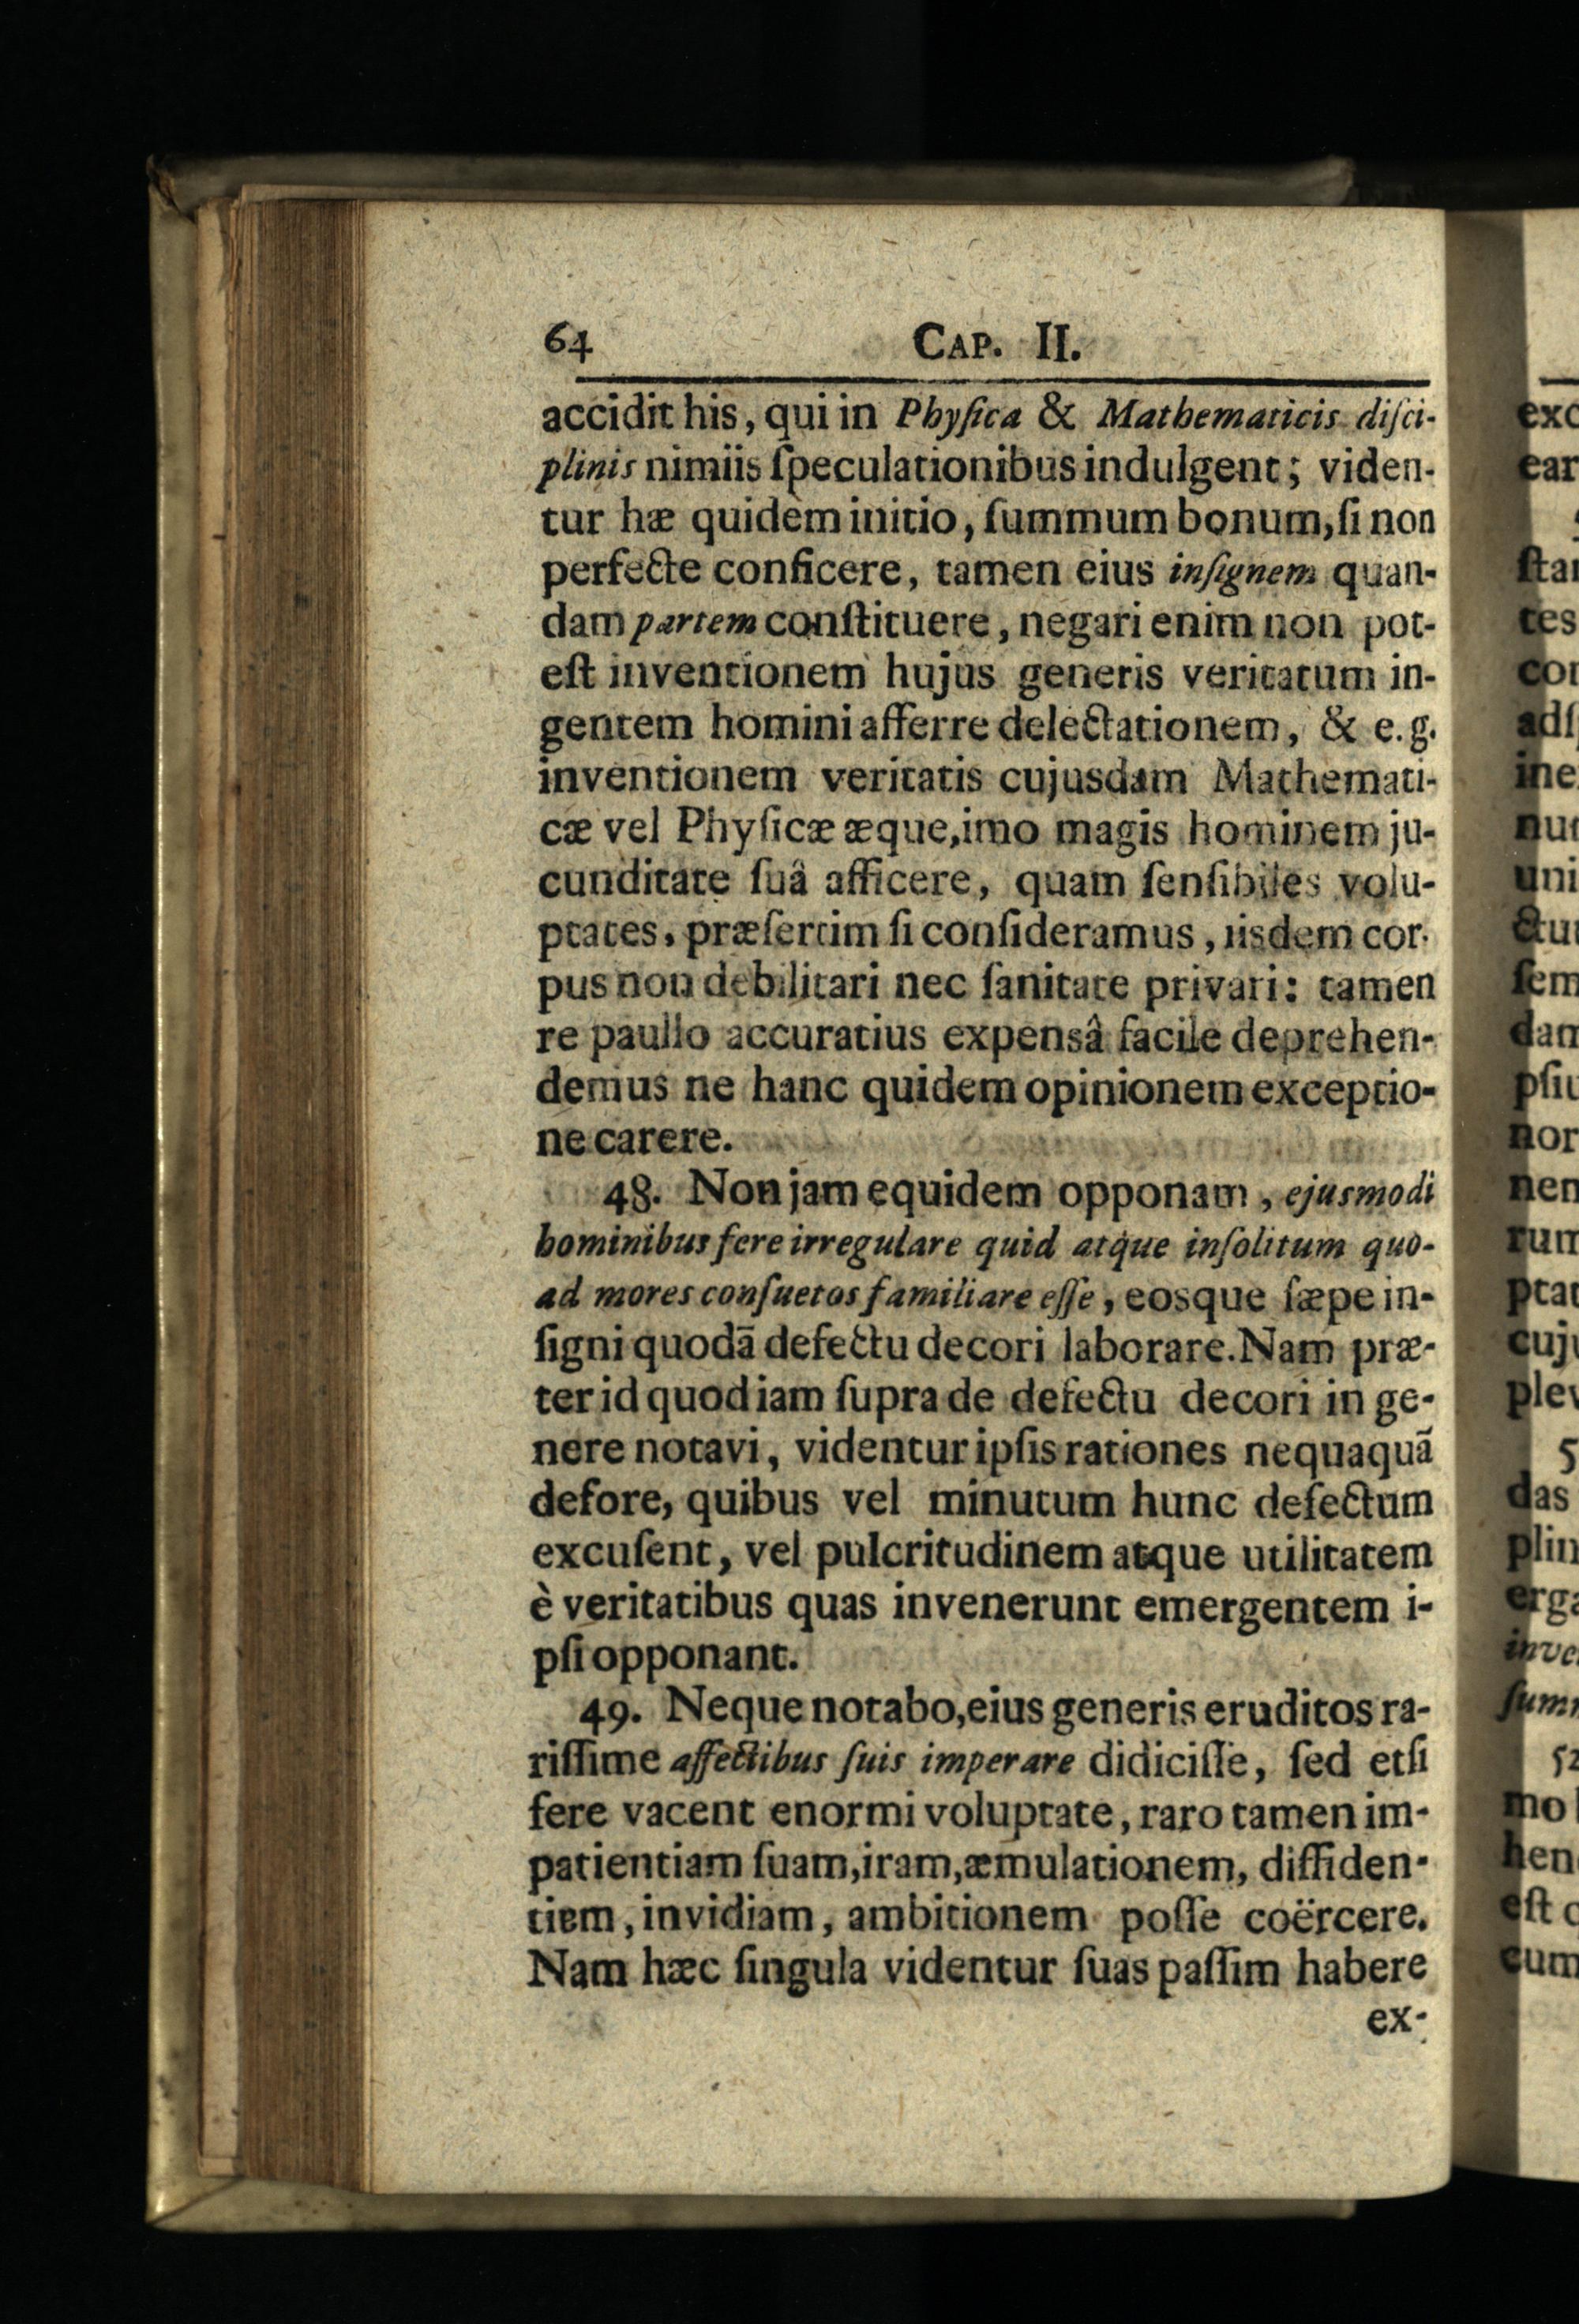 64 CAP. II.
accidit his, qui in Phyſica & Mathematicis diſci-
plinis nimiis ſpeculationibus indulgent; viden-
tur hæ quidem initio, ſummum bonum, ſi non
perfecte conficere, tamen eius inſignem quan-
dam partem conſtituere, negari enim non pot-
eſt inventionem hujus generis veritatum in-
gentem homini afferre delectationem, & e. g.
inventionem veritatis cujusdam Mathemati-
cæ vel Phyſicæ æque, imo magis hominem ju-
cunditate ſuâ afficere, quam ſenſibiles volu-
ptates, præſertim ſi conſideramus, iisdem cor-
pus non debilitari nec ſanitate privari: tamen
re paullo accuratius expensâ facile deprehen-
demus ne hanc quidem opinionem exceptio-
ne carere.
48. Non jam equidem opponam, ejusmodi
hominibus fere irregulare quid atque inſolitum quo-
ad mores conſuetos familiare eſſe, eosque ſæpe in-
ſigni quodā defectu decori laborare. Nam præ-
ter id quod iam ſupra de defectu decori in ge-
nere notavi, videntur ipſis rationes nequaquā
defore, quibus vel minutum hunc defectum
excuſent, vel pulcritudinem atque utilitatem
è veritatibus quas invenerunt emergentem i-
pſi opponant.
49. Neque notabo, eius generis eruditos ra-
riſſime affectibus ſuis imperare didiciſſe, ſed etſi
fere vacent enormi voluptate, raro tamen im-
patientiam ſuam, iram, æmulationem, diffiden-
tiem, invidiam, ambitionem poſſe coërcere.
Nam hæc ſingula videntur ſuas paſſim habere
ex-